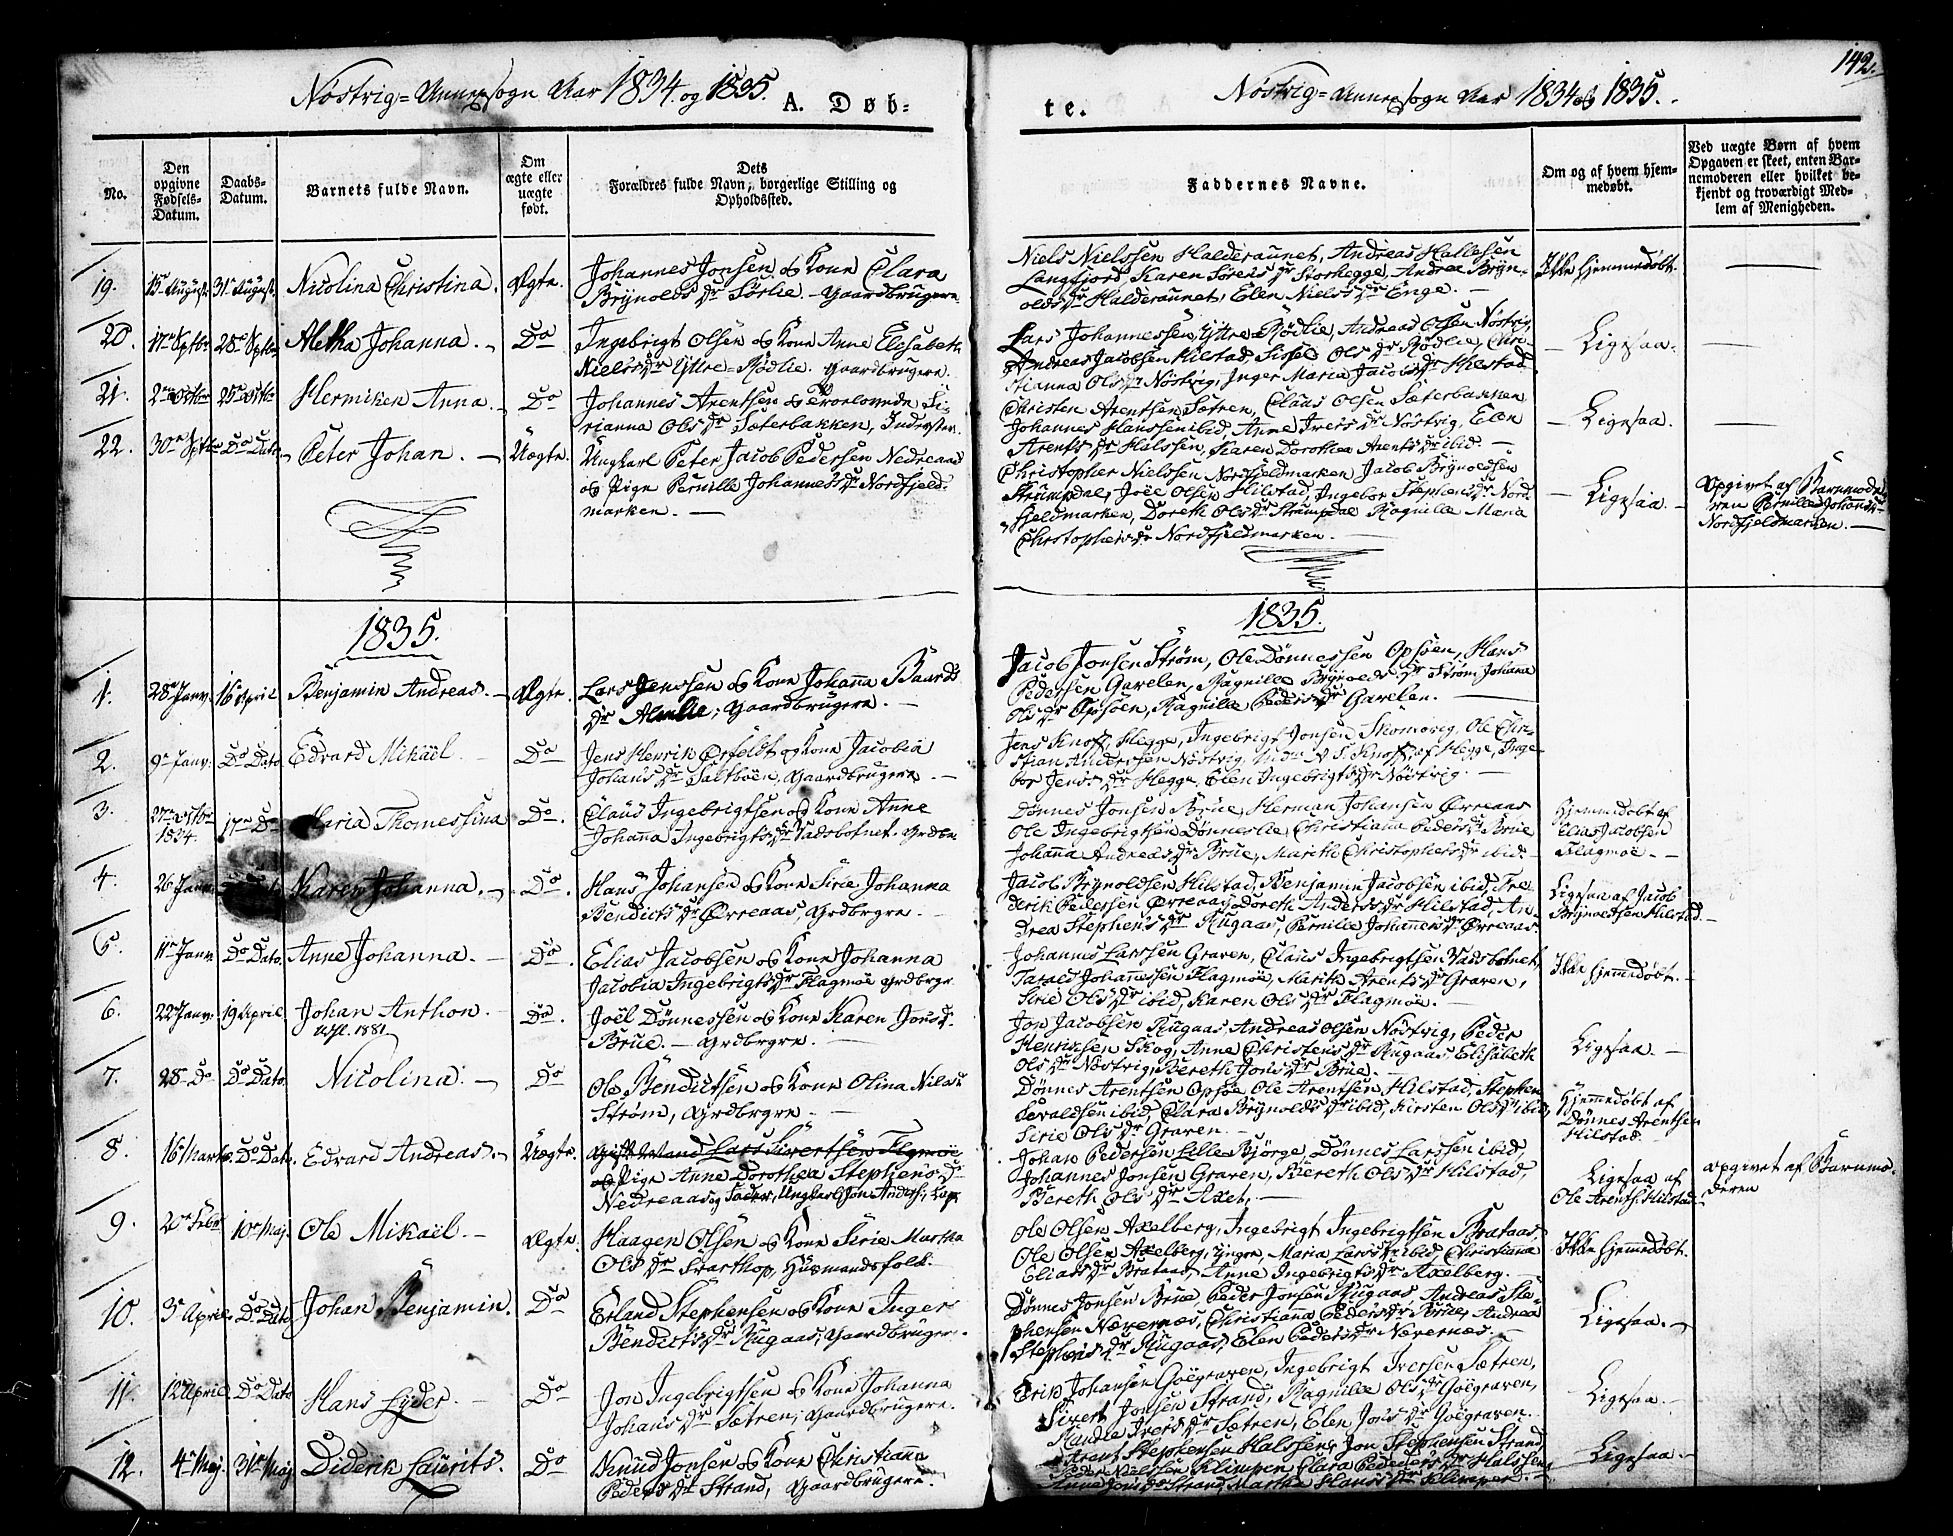 142.
Nöstvig=Annexsogn Aar 1834. og 1835. A. Døb=
Nöstvig=Annexsogn Aar 1834 og 1835.
te.
No.
Den opgivne Fødsels-Datum.
Daabs-Datum.
Barnets fulde Navn.
Om ægte eller uægte født.
Dets Forældres fulde Navn, borgerlige Stilling og Opholdssted.
Faddernes Navne.
Om og af hvem hjemmedøbt.
Ved uægte Børn af hvem Opgaven er skeet, enten Barnemoderen eller hvilket bekjendt og troværdigt Medlem af Menigheden.
19. 15de August 31te August. Nicolina Christina. Ægte.
Johannes Jonsen og Kone Clara
Brynolds Dr Sörlie. Gaardbrugere
Niels Nielssen Halderaunet, Andreas Hallesen
Langfjord, Karen Sörens Dr Storhegge, Andrea Bryn-
olds Dr Halderaunet, Elen Niels Dr Enge.
Ikke hjemmedöbt.
20. 17de Septbr 28de Septbr. Metha Johanna. Do
Ingebrigt Olsen og Kone Anne Elisabeth
Niels Dr Yttre=Rödlie. Gaardbrugere.
Lars Johannessen Yttre Rödlie, Andreas Olsen Nöstvig,
Andreas Jacobsen Hilstad, Sissel Ols Dr Rödlie, Chri-
stianna Ols Dr Nöstvig, Inger Maria Jacobs Dr Hilstad
Ligesaa.
21. 2den Octbr 25de Octbr Hermiken Anna. Do
Johannes Arentsen og Troelovede Si-
rianna Ols Dr Sæterbakken, Inderster.
Christen Arentsen Sætren, Claus Olsen Sæterbakken
Johannes Hanssen ibid, Anne Ivers Dr Nöstvig, Elen
Arents Dr Halssen, Karen Dorothea Arents Dr ibid.
Ligesaa.
22. 30te Septbr Do Dato Peter Johan. Uægte.
Ungkarl Peter Jacob Pedersen Nedreaas
og Pige Pernille Johannes Dr Nordfjeld-
marken.
Christopher Nielssen Nordfjeldmarken, Jacob Brynoldsen
Strumpdal, Joël Olsen Hilstad, Ingebor Stephens Dr Nord-
fjeldmarken, Doreth Ols Dr Strumpdal Ragnille Maria
Christophers Dr Nordfjeldmarken.
Ligesaa.
Opgivet af Barnemode-
ren Pernille Johannes Dr
Nordfjeldmarken.
1835.
1835.
1. 28de Janv. 16 April Benjamin Andreas. Ægte.
Lars Jenssen og Kone Johanna Baards
Dr Almlie; Gaardbrugere.
Jacob Jonsen Ström, Ole Dönnessen Opsöen, Hans
Pedersen Garelen, Ragnille Brynolds Dr Ström, Johana
Ols Dr Opsöen, Ragnille Peders Dr Garelen.
2. 9de Janv. Do Dato Edvard Mikäel. Do
Jens Henrik Öefeldt og Kone Jacobia
Johans Dr Salthöen, Gaardbrugere.
Jens Knoff, Hegge, Ingebrigt Jonsen Thomvig, Ole Chri-
stian Anderssen Nöstvig, Md N. S. Knoff, af Hegge, Inge-
bor Jens Dr Hegge, Elen Ingebrigts Dr Nöstvig.
3. 27de Octbr 1834. 17de Do Maria Thomessina Do.
Claus Ingebrigtsen og Kone Anne
Johanna Ingebrigts Dr Vadsbotnet. Grdbr
Dönnes Jonsen Brue, Herman Johansen Örreaas
Ole Ingebrigtsen Dönneslie, Christiana Peders Dr Brue
Johanna Andreas Dr Brue, Mareth Christophers Dr ibid.
Hjemmedöbt af
Elias Jacobsen
Flagmöe.
4. 26 Janv. Karen Johanna. Do.
Hans Johansen og Kone Sirie Johanna
Bendicts Dr Örreaas, Grdbrgre.
Jacob Brynoldsen Hilstad, Benjamin Jacobsen ibid, Fre-
derik Pedersen Örreaas, Doreth Anders Dr Hilstad, An-
drea Stephens Dr Rugaas, Pernille Johannes Dr Örreaas.
Ligesaa af Jacob
Brynoldsen Hilstad.
5. 11te Janv Do Dato. Anne Johanna. Do.
Elias Jacobsen og Kone Johanna
Jacobia Ingebrigts Dr Flagmöe Grdbrgr
Johannes Larssen Graven, Claus Ingebrigtsen Vadsbotnet,
Tarald Johannessen Flagmöe, Marith Arents Dr Graven,
Sirie Ols Dr ibid, Karen Ols Dr Flagmöe.
Ikke hjemmedöbt.
6. 22 Janv. 19 April. Johan Anthon. Do.
Utfl. 1881
Joël Dönnessen og Kone Karen Jons D.
Brue. Grdbrgre.
Jon Jacobsen Rugaas, Andreas Olsen Nöstvig, Peder
Henrichsen Skog, Anne Christens Dr Rugaas Elisabeth
Ols Dr Nöstvig, Bereth Jons Dr Brue.
Ligesaa.
7. 28 Do Do Dato. Nicolina. Do
Ole Bendictsen og Kone Olina Nils
Ström, Grdbrgre.
Dönnes Arentsen Opsöe, Ole Arentsen Hilstad, Stephen
Sevaldsen ibid, Clara Brynolds Dr ibid, Kirsten Ols Dr ibid,
Sirie Ols Dr Graven.
Hjemmedöbt af
Dönnes Arentsen
Hilstad.
8. 16 Marts. Do Dato. Edvard Andreas. Uægte.
Gift Mand Lars Sivertsen Flagmöe
og Pige Anne Dorothea Stephens Dr
Nedreaas, Fader, Ungkarl Jon
Johan Pedersen Lille Björge, Dönnes Larssen ibid,
Johannes Jonsen Graven, Bereth Ols Dr Hilstad,
Bereth Ols Dr Axel.
Ligesaa af
Ole Arents. Hilstad.
Opgivet af Barnmo-
deren
9. 20de Febr 10de Maj. Ole Mikäel. Ægte.
Haagen Olsen og Kone Sirie Martha
Ols Dr Svarthop, Huusmandsfolk.
Ole Olsen Axelberg, Ingebrigt Ingebrigtsen Brataas,
Ole Olsen Axelberg, Yngre, Maria Lars Dr ibid, Christiana
Elias Dr Brataas, Anne Ingebrigts Dr Axelberg.
Ikke hjemmedöbt.
10. 3de April. Do Dato Johan Benjamin. Do
Erland Stephensen og Kone Inger
Bendicts Dr Rugaas, Gaardbrugere.
Dönnes Jonsen Brue Peder Jonsen Rugaas Andreas Ste-
phensen Nævernæs, Christianna Peders Dr Brue, Andrea
Stephens Dr Rugaas, Elen Peders Dr Nævernæs.
Ligesaa.
11. 12te April. Do Dato Hans Lyder. Do
Jon Ingebrigtsen og Kone Johanna
Johans Dr Sætren, Gaardbrugere.
Erik Johansen Goëgraven, Ingebrigt Iversen Sætren,
Sivert Jonsen Strand, Ragnille Ols Dr Goëgraven,
Ivers Dr Sætren, Elen Jons Dr Goëgraven.
Ligesaa.
12. 4de Maj 31te Maj Diderik Laurits. Do
Knud Jonsen og Kone Christiana
Peders Dr Strand, Gaardbrugere.
Arent Stephensen Halssen, Jon Stephensen Strand
Peder Nielssen Klimpen, Clara Peders Dr Halssen,
Anne Jons Dr Strand, Martha Hans Dr Klimpen.
Ligesaa.